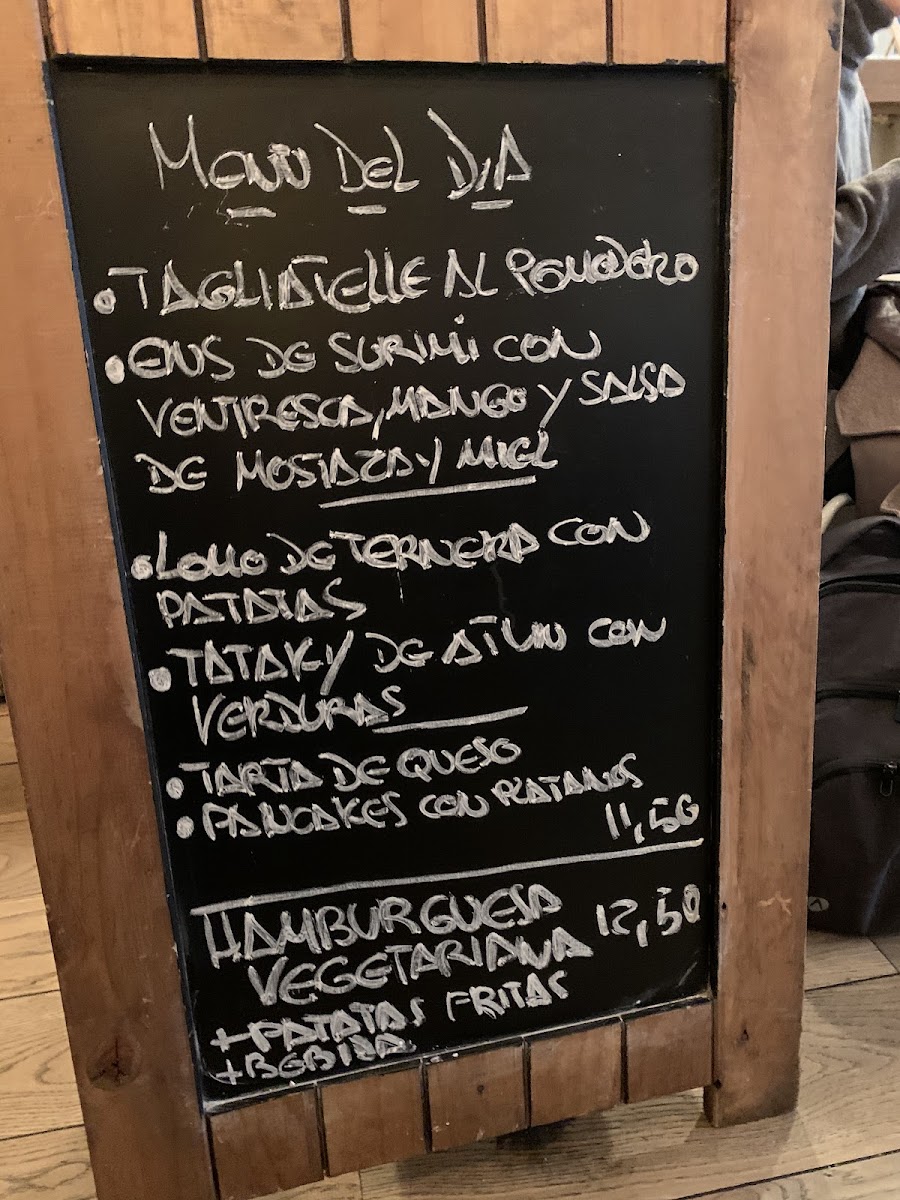 MENU DEL DIA
• TAGLIATELLE AL POMODORO
• ENS DE SURIMI CON
VENTRESCA, MANGO Y SALSA
DE MOSTAZA Y MIEL
• LOMO DE TERNERA CON
PATATAS
• TATAKY DE ATUN CON
VERDURAS
• TARTA DE QUESO
• PANCAKES CON PLATANOS
11,50
HAMBURGUESA 12,50
VEGETARIANA
+ PATATAS FRITAS
+ BEBIDA